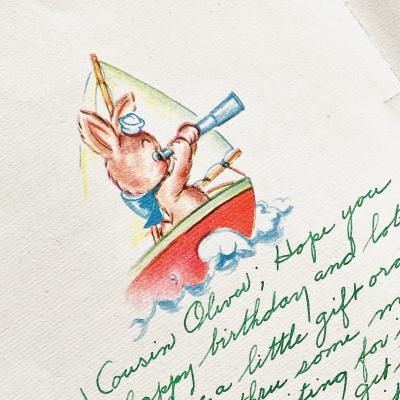 Cousin Oliver; Hope you
happy birthday and lot
a little gift
thru some
ting for
get